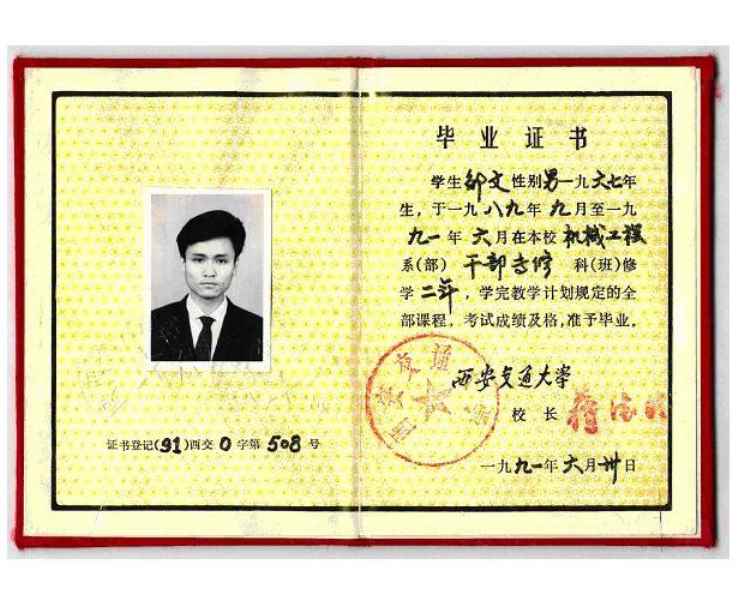 证书登记(91)西交 0 字第 508 号
毕业证书
学生邹文性别男一九六七年
生，于一九八九年九月至一九
九一年六月在本校机械工程
系(部) 干部专修 科(班)修
学二年，学完教学计划规定的全
部课程，考试成绩及格，准予毕业。
西安交通大学
校长
一九九一年六月卅日